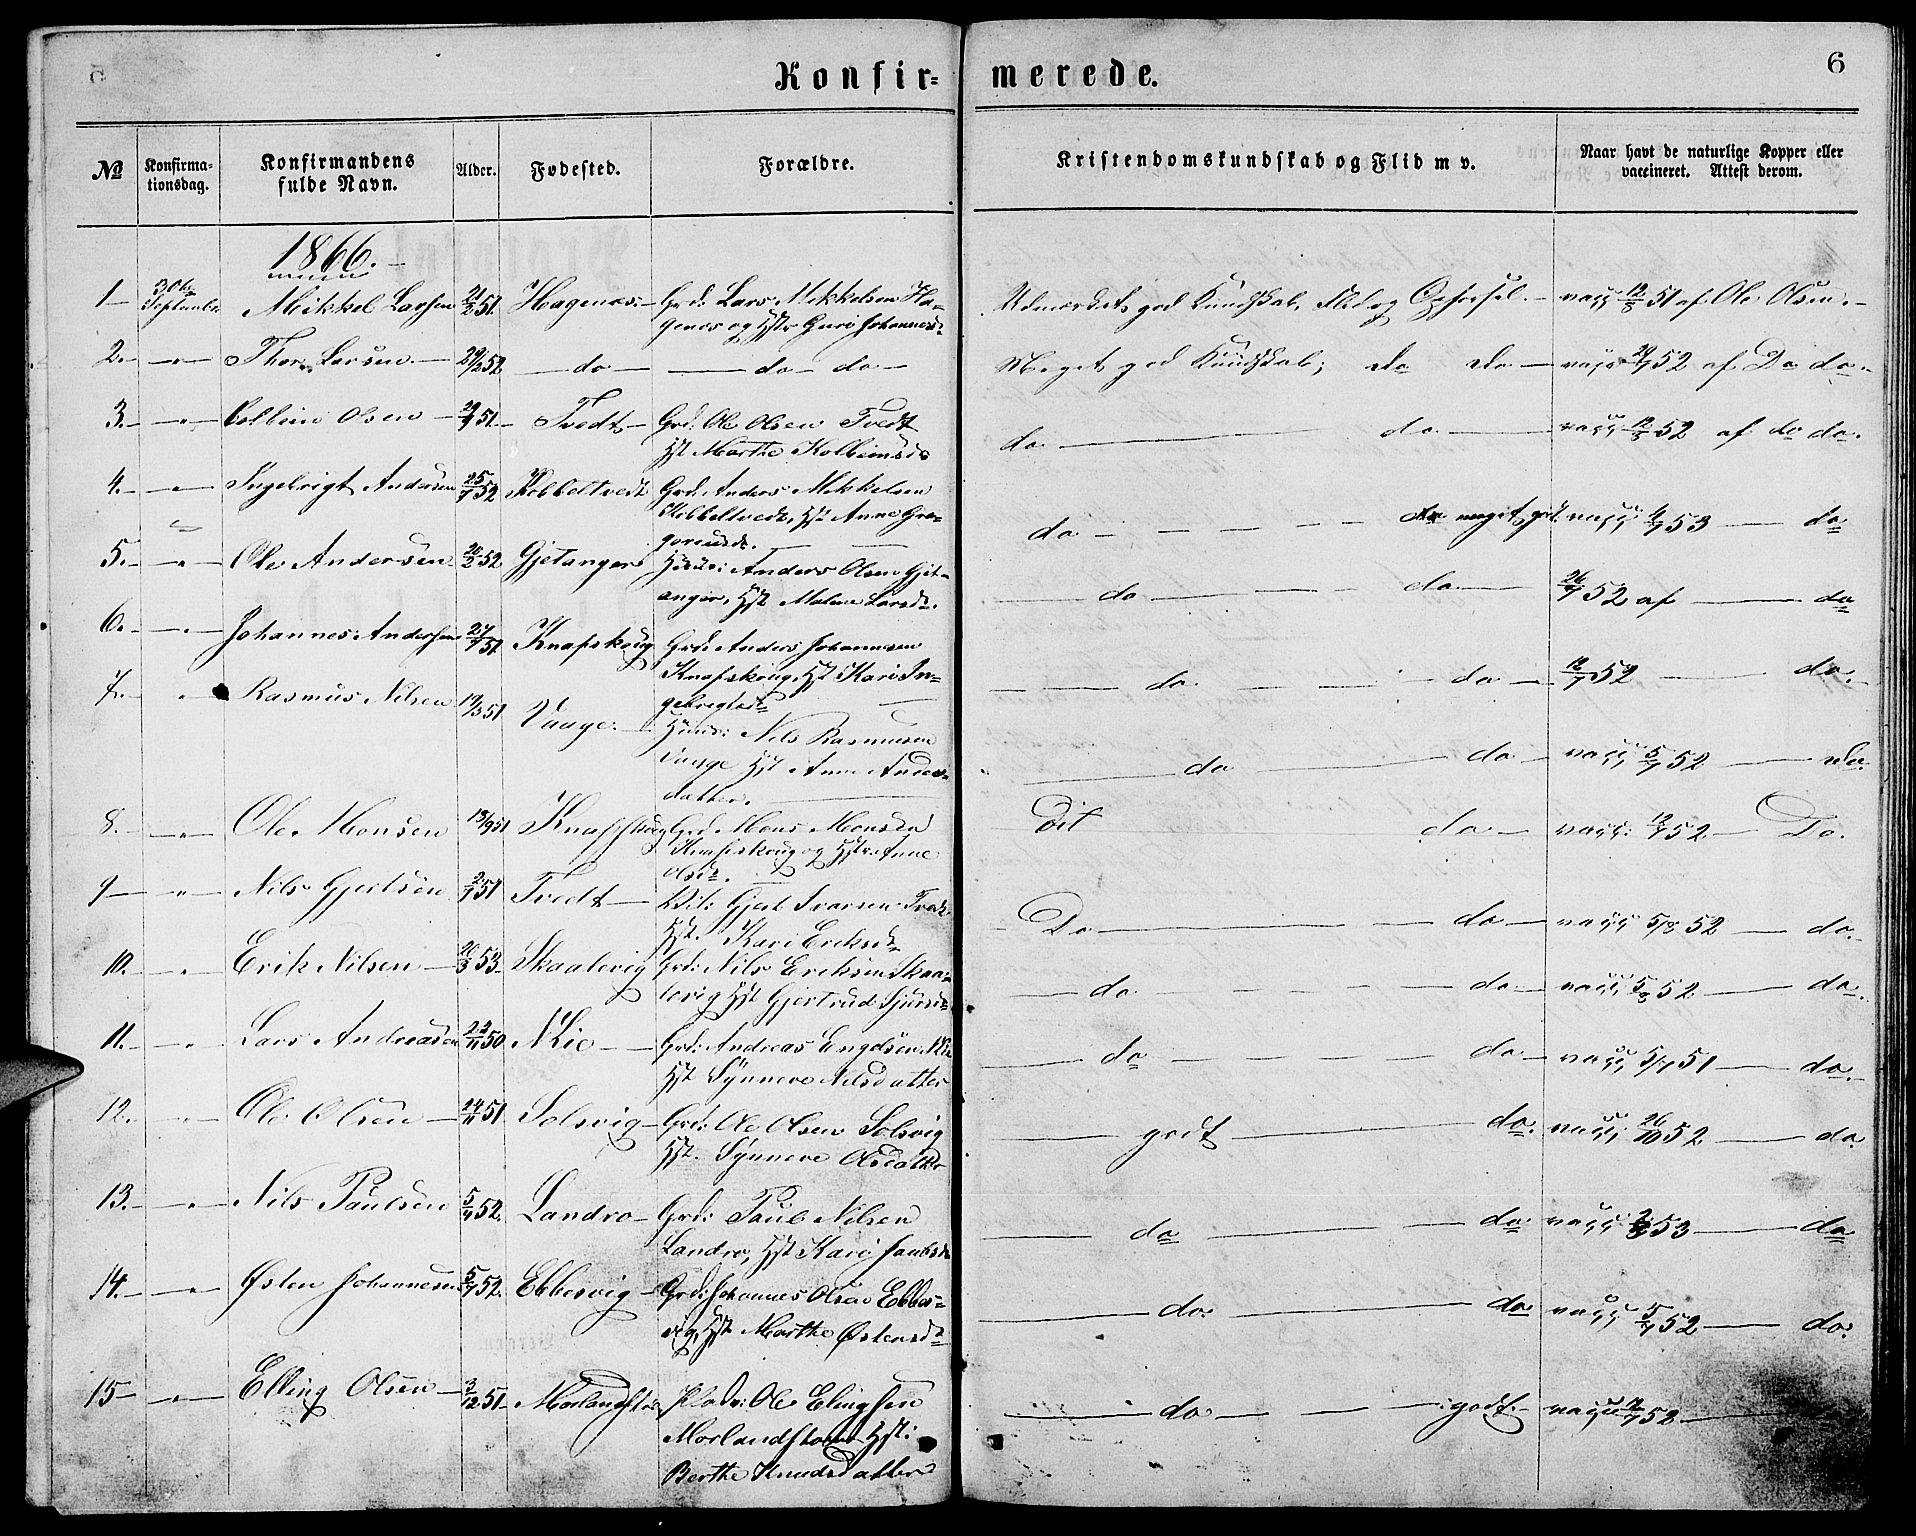 5
Konfir-
merede.
6
No Konfirma-tionsdag. Konfirmandens fulde Navn. Alder. Fødested. Forældre. Kristendomskundskab og Flid m v. Naar havt de naturlige Kopper eller vaccineret. Attest derom.
1866.
1 30te September Mikkel Larsen 51. Hagenæs. Grd: Lars Mikkelsen Ha-
genæs og Hstr Guro Johannesd. Udmærkets god Kundskab, Flid og Opførsel. vacc 51 af Ole Olsen.
2. Thor Larsen 52 do do do Meget god Kundskab; do do vacc 52 af Do do.
3. Kolbein Olsen 51 Tvedt Grd: Ole Olsen Tvedt
Hst Marthe Kolbeinsd. do do vacc 52 af do do.
4. Ingebrigt Andersen 25/7 52 Kobbeltvedt Grd: Anders Mikkelsen
Kobbeltvedt, Hst Anne Gre-
goriusd. do do meget god. vacc 53 do
5. Ole Andersen 52 Gjetanger Huus: Anders Olsen Gjet-
anger, Hst Malene Larsd. do do 26/7 52 af do
6. Johannes Andersen 51 Knapskoug Grd: Anders Johannesen
Knapskoug, Hst Kari In-
gebrigtsd. do do 12/7 52 do.
7. Rasmus Nilsen 19/3 51 Vaage Huus: Nils Rasmusen
Vaage Hst Anne Anders-
datter. do do vacc 5/7 52 do.
8. Ole Monsen 51 Knapskoug Grd. Mons Monsen
Knapskoug og Hstr: Anne
Olsd. Dit do vacc: 52 Do.
9 Nils Gjertsen 51 Tvedt Gjert Ivarsen Tvedt
Hst. Kari Eriksd. Do do vacc 5/8 52 do.
10. Erik Nilsen 53 Skaalevig Grd: Nils Eriksen Skaa-
levig Hst Gjertrud do do vacc 5/8 52 do.
11. Lars Andreasen 22/11 50 N Lie Grd: Andreas N Lie
Hst Synneve Nilsdatter do do vacc 5/7 51 do.
12. Ole Olsen 24/11 51 Solsvig Grd: Ole Olsen Solsvig
Hst. Synneve Olsdatter godt do. vacc 26/10 52 do
13. Nils Paulsen 52. Landro Grd: Paul Nilsen
Landro, Hst Kari do do vacc 53 do
14. Østen Johannesen 5/7 52. Ebbesvig Grd: Johannes Olsen Ebbes-
vig, Hst Marthe Østensd. do do vacc 5/7 52 do.
15 Elling Olsen 3/12 51 Morlandstø Ole Elingsen
Morlandstøen Hst:
Berthe Knudsdatter do godt. vacc 52